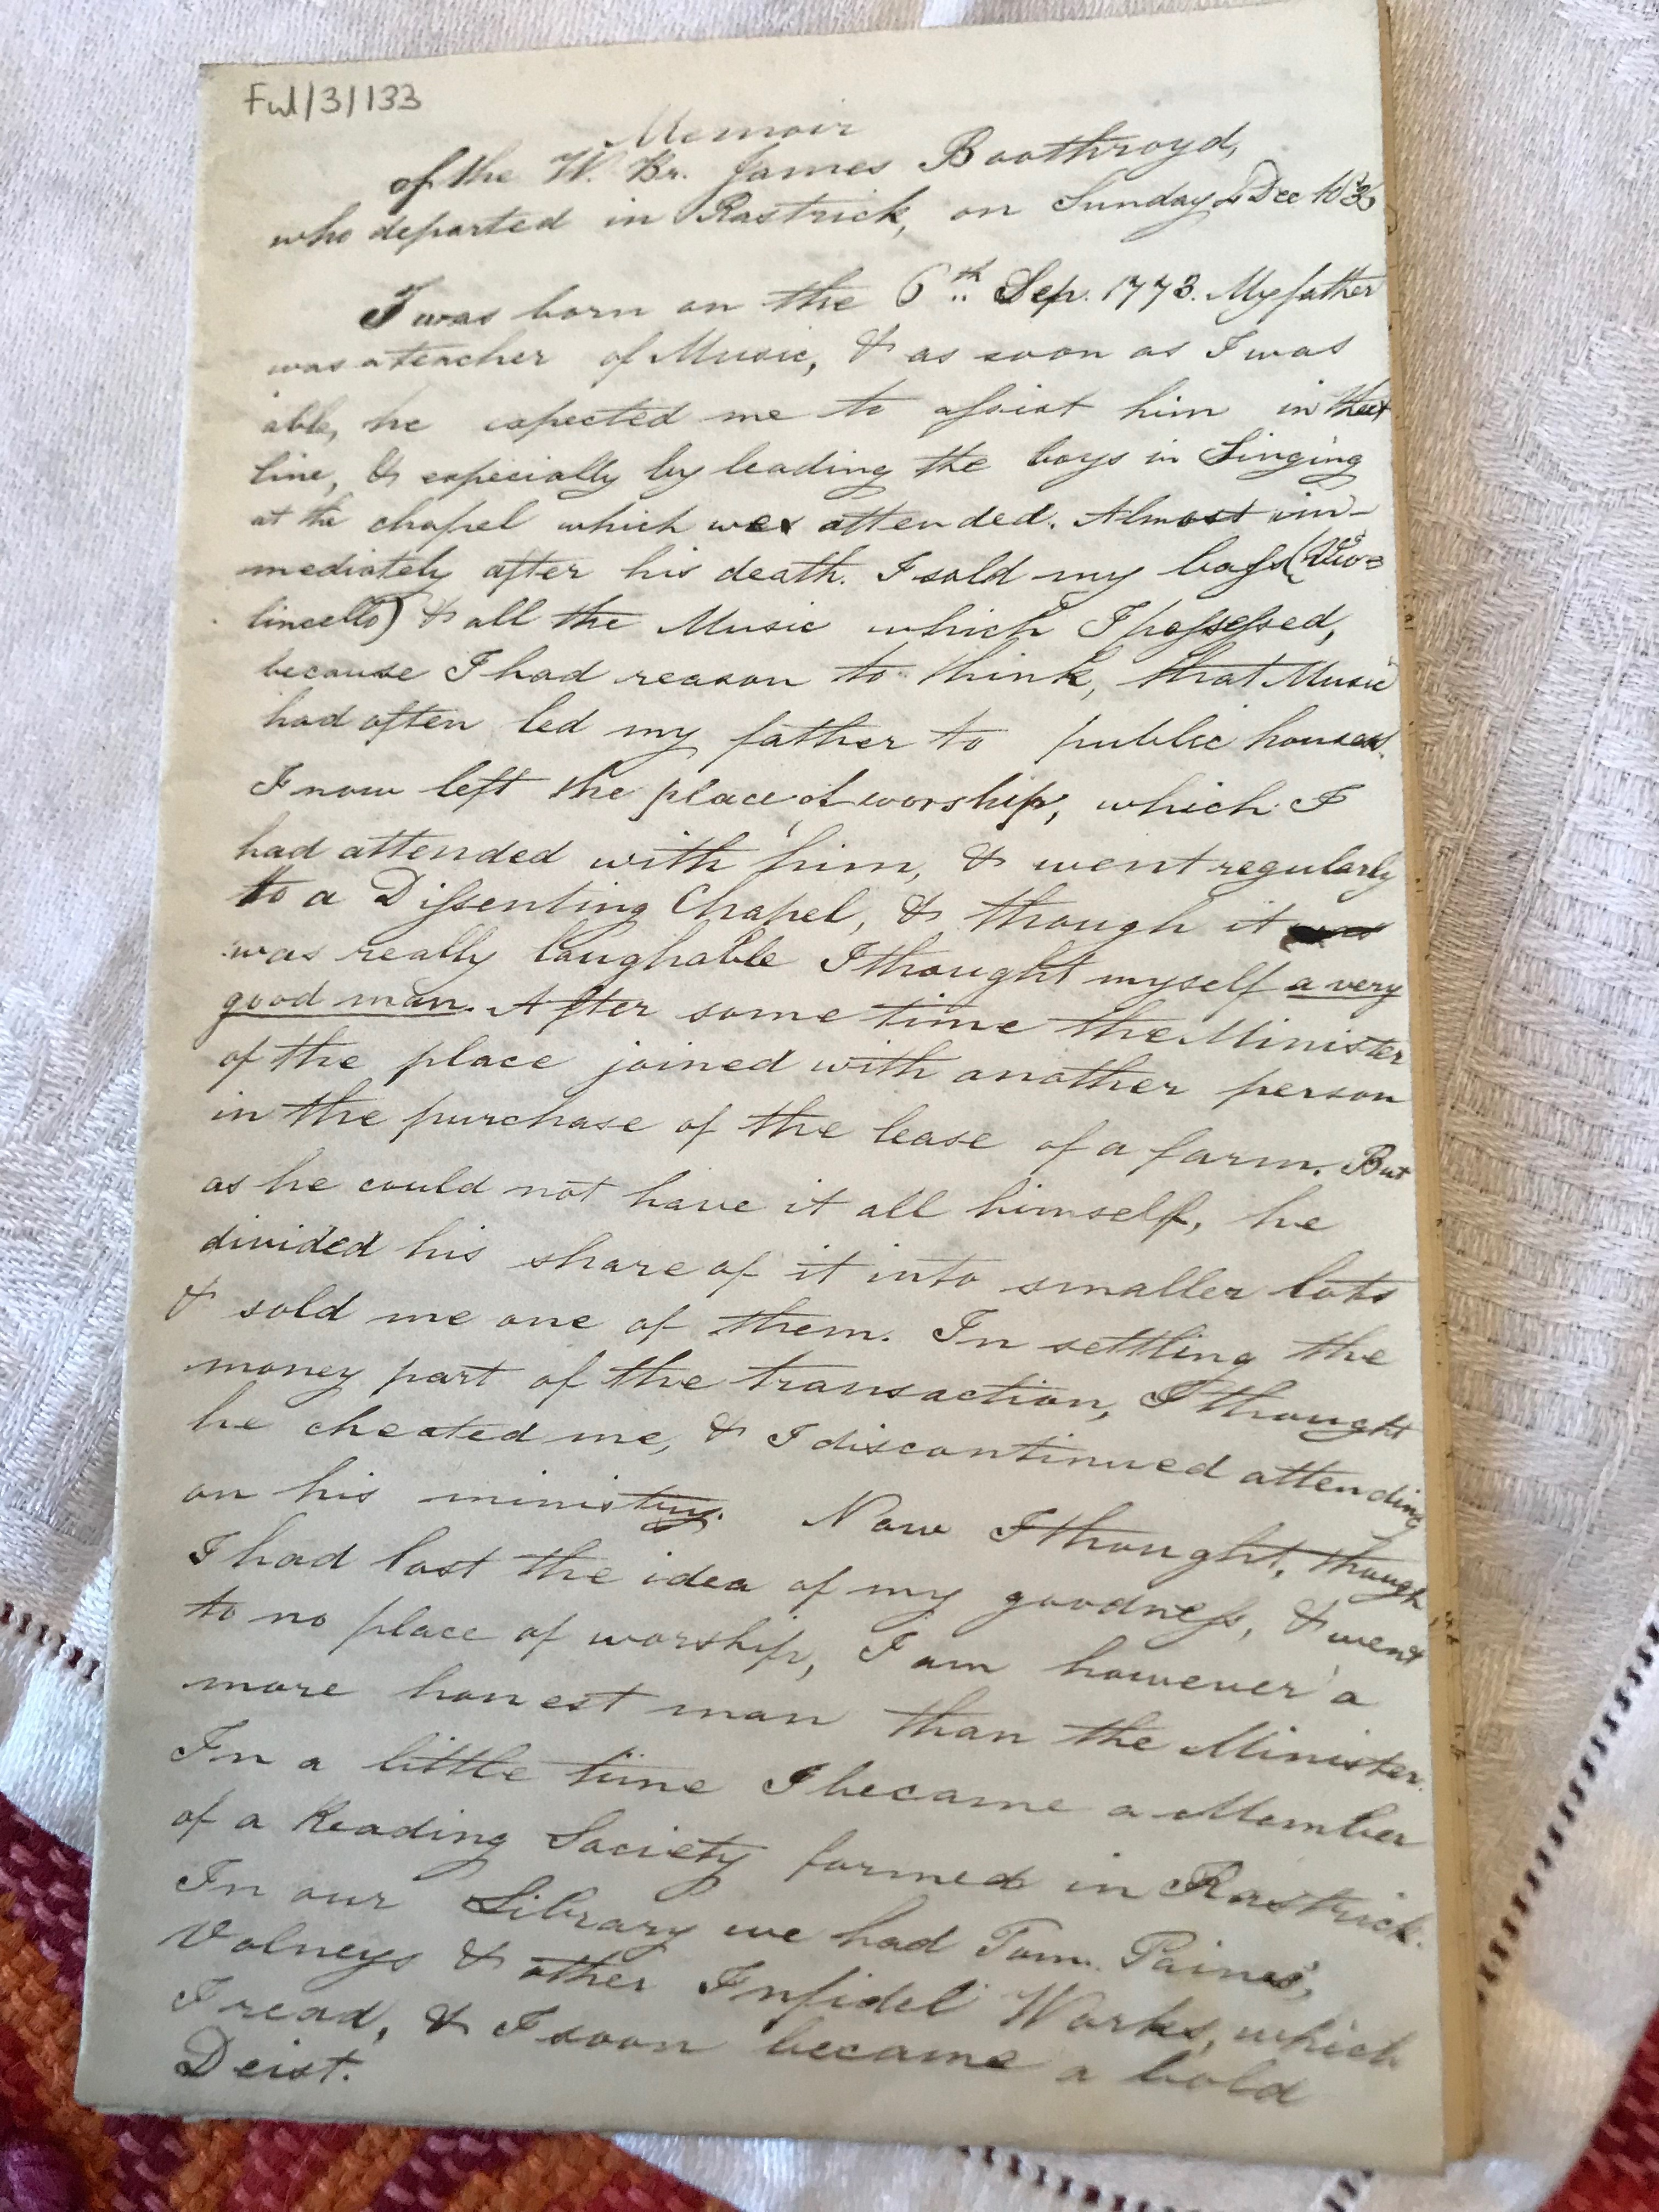 Ful/3/133
Memoir
of the W. Br. James Boothroyd,
who departed in Rastrick, on Sunday Dec
I was born on the 6th Sep. 1773. My father
was a teacher of Music, & as soon as I was
able, he expected me to assist him in that
line, & especially by leading the boys in Singing
at the chapel which we attended. Almost im-
mediately after his death. I sold my bass (Vio=
lincello) & all the Music which I possessed,
because I had reason to think, that Music
had often led my father to public houses.
I now left the place of worship, which I
had attended with him, & went regularly
to a Dissenting Chapel, & though it
was really laughable I thought myself a very
good man. After some time the Minister
of the place joined with another person
in the purchase of the lease of a farm. But
as he could not have it all himself, he
divided his share of it into smaller lots
& sold me one of them. In settling the
money part of the transaction, I thought
he cheated me, & I discontinued attending
on his ministry. Now I thought, though
I had lost the idea of my goodness, & went
to no place of worship, I am however a
more honest man than the Minister.
In a little time I became a Member
of a Reading Society formed in Rastrick.
In our Library we had Tom. Paines,
Volneys & other Infidel Works, which
I read, & I soon became a bold
Deist.